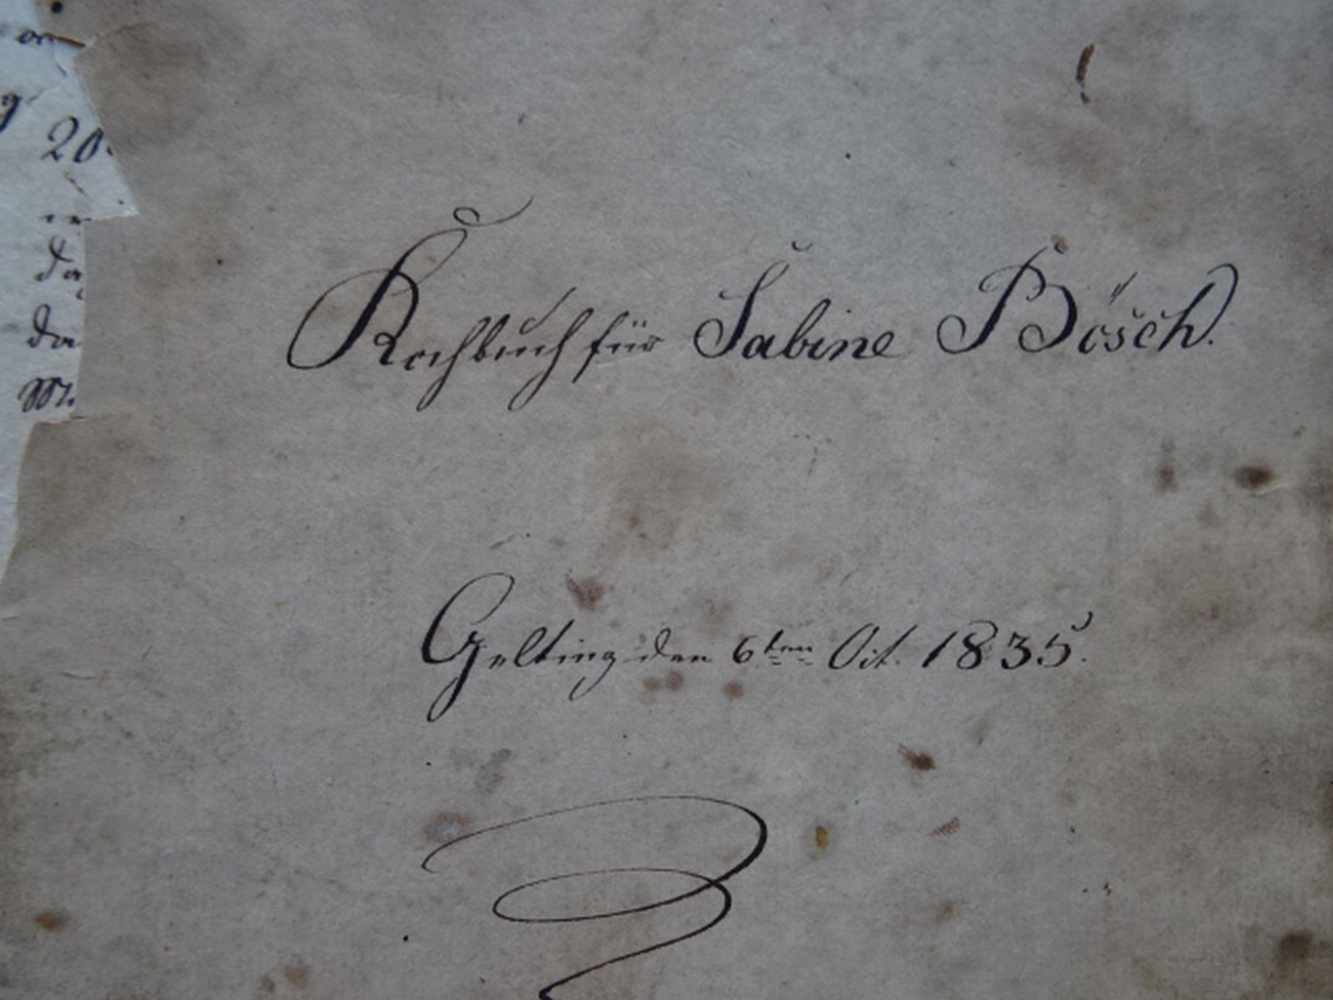 20
da
da
Kochbuch für Sabine Bösch.
Gelting den 6ten Oct. 1835.